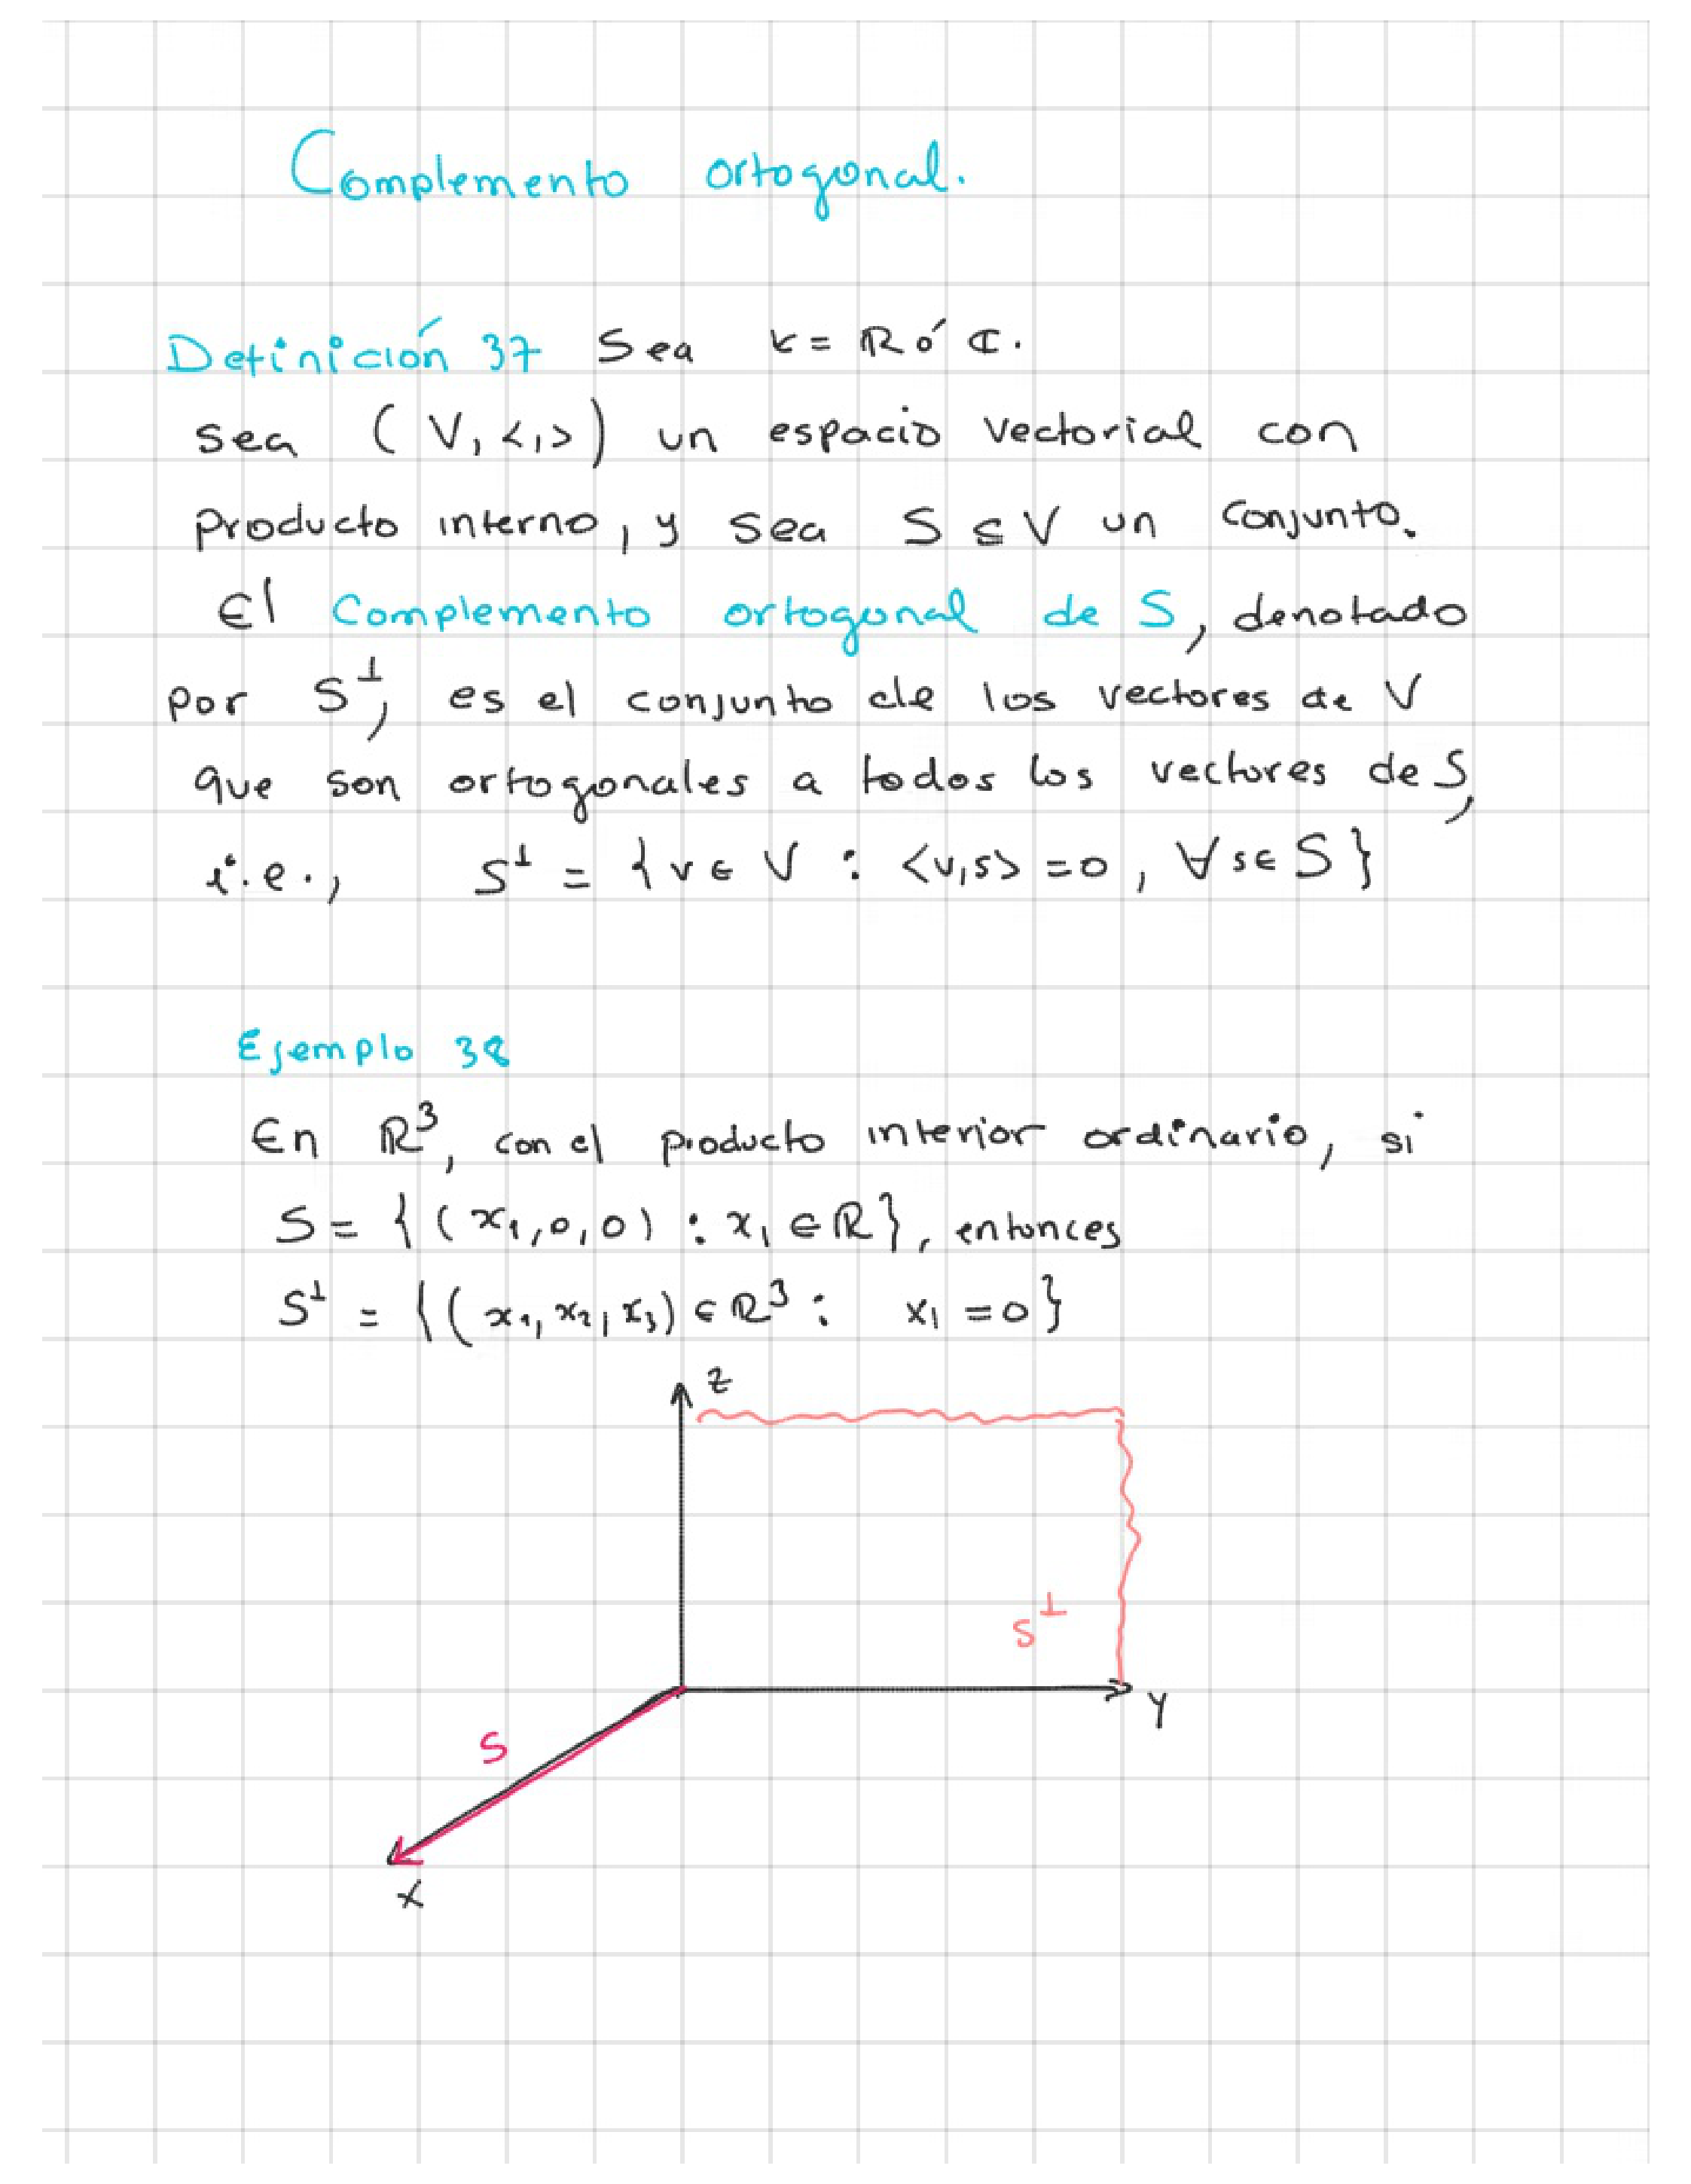 Complemento ortogonal.
Definición 37 Sea K = ℝ ó ℂ.
sea (V, <,>) un espacio vectorial con
producto interno, y sea S ⊆ V un conjunto.
El Complemento ortogonal de S, denotado
por S^⊥, es el conjunto de los vectores de V
que son ortogonales a todos los vectores de S,
i.e., S^⊥ = {v ∈ V : <v,s> = 0, ∀ s ∈ S}
Ejemplo 38
En ℝ³, con el producto interior ordinario, si
S = {(x₁,0,0) : x₁ ∈ ℝ}, entonces
S^⊥ = {(x₁, x₂, x₃) ∈ ℝ³ : x₁ = 0}
z
S^⊥
y
S
x